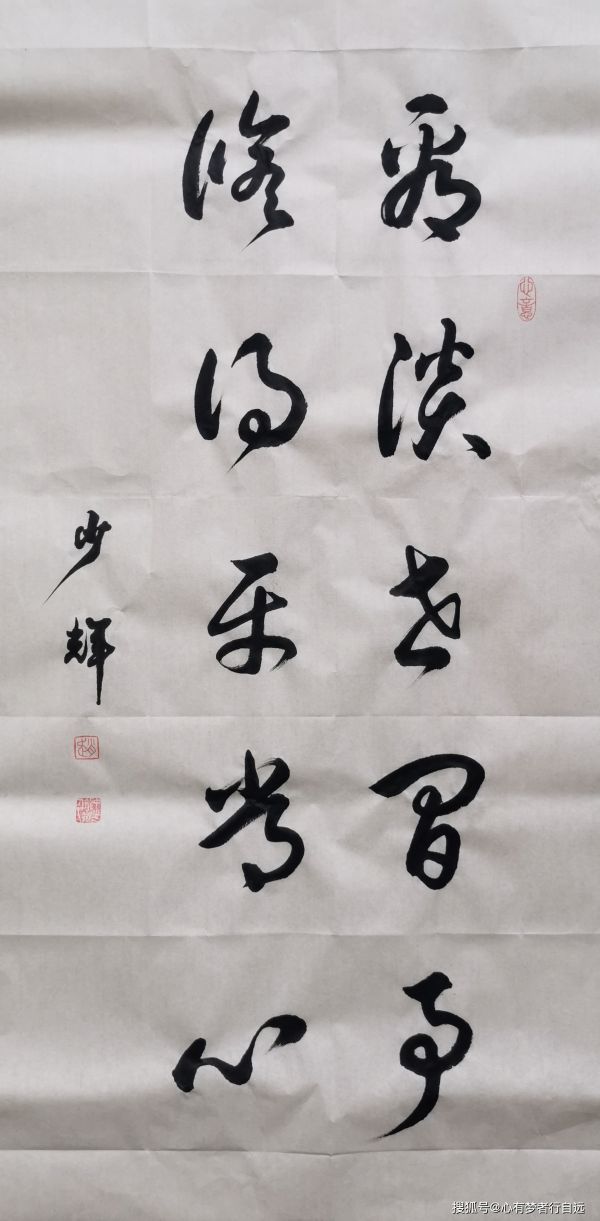 看淡世間事
修得平常心
少輝
搜狐号@心有梦者行自远